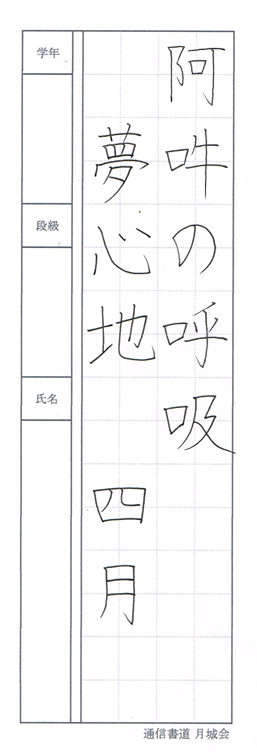 阿吽の呼吸
夢心地　四月
学年
段級
氏名
通信書道 月城会